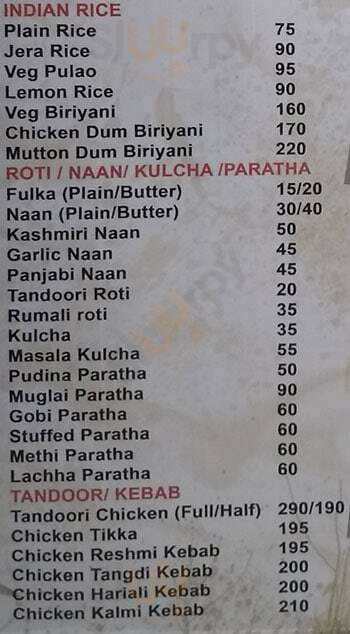 INDIAN RICE
Plain Rice 75
Jera Rice 90
Veg Pulao 95
Lemon Rice 90
Veg Biriyani 160
Chicken Dum Biriyani 170
Mutton Dum Biriyani 220
ROTI / NAAN/ KULCHA /PARATHA
Fulka (Plain/Butter) 15/20
Naan (Plain/Butter) 30/40
Kashmiri Naan 50
Garlic Naan 45
Panjabi Naan 45
Tandoori Roti 20
Rumali roti 35
Kulcha 35
Masala Kulcha 55
Pudina Paratha 50
Muglai Paratha 90
Gobi Paratha 60
Stuffed Paratha 60
Methi Paratha 60
Lachha Paratha 60
TANDOOR/ KEBAB
Tandoori Chicken (Full/Half) 290/190
Chicken Tikka 195
Chicken Reshmi Kebab 195
Chicken Tangdi Kebab 200
Chicken Hariali Kebab 200
Chicken Kalmi Kebab 210